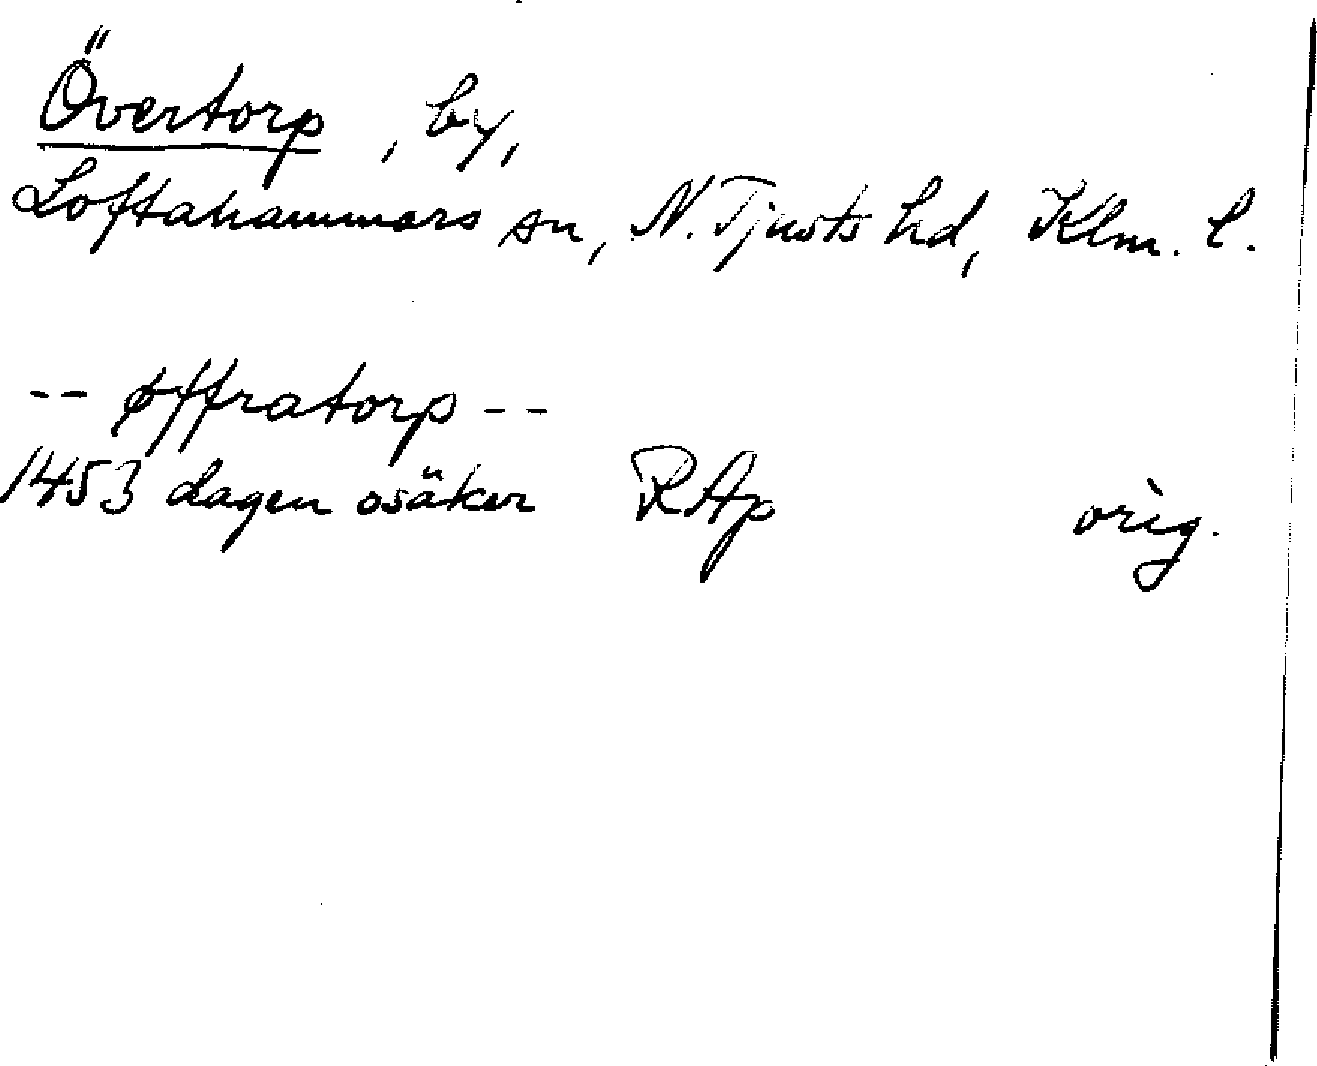 Övertorp , by,
Loftahammars sn, N. Tjusts hd, Klm. l.
-- øffratorp --
1453 dagen osäker RAp orig.